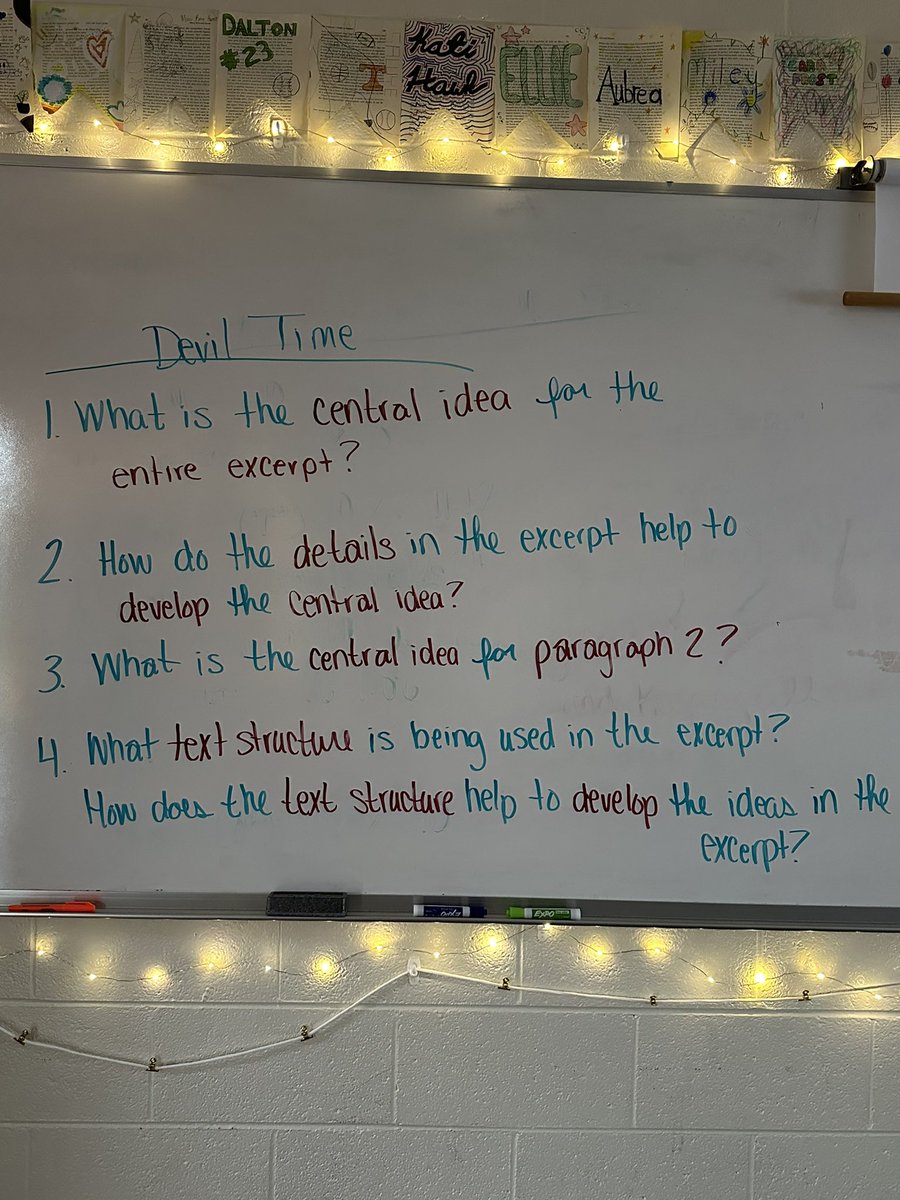 DALTON
#23
Kati
Hawk
ELLIE
Aubrea
Miley
Devil Time
1. What is the central idea for the
entire excerpt?
2. How do the details in the excerpt help to
develop the central idea?
3. What is the central idea for paragraph 2?
4. What text structure is being used in the excerpt?
How does the text structure help to develop the ideas in the
excerpt?
EXPO
EXPO